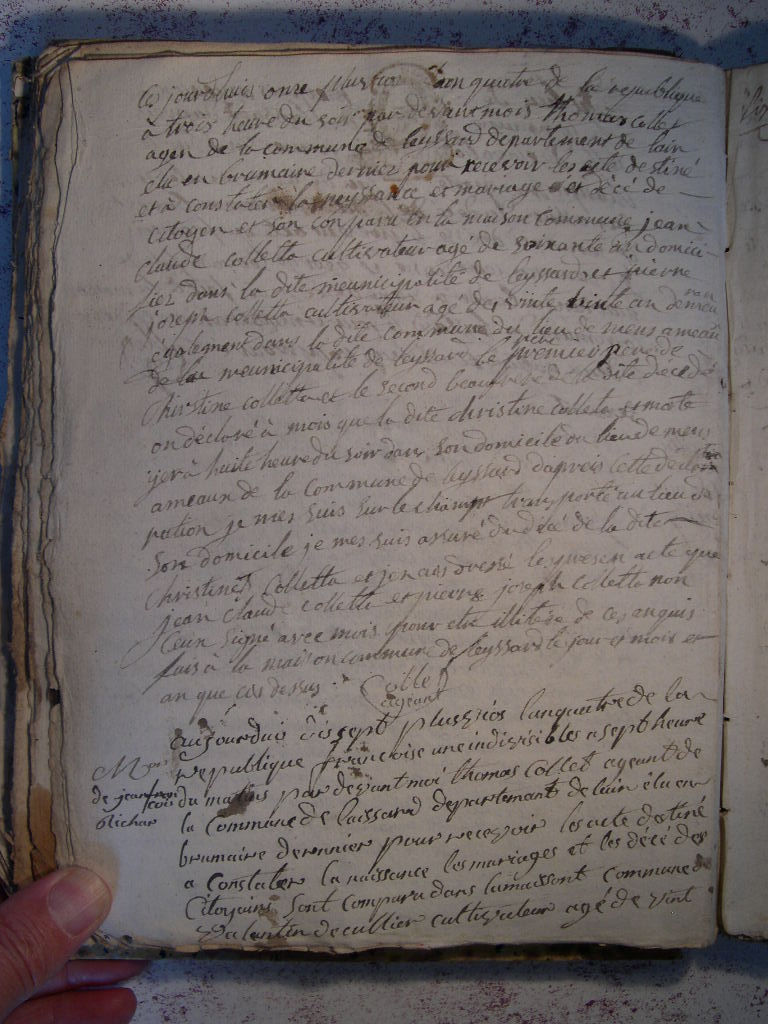 Ce jourdhuis onze pluviose lan quatre de la republique
a trois heure du soir par devant mois thomas collet
agen de la commune de leyssard departement de lain
elu en brumaire dernier pour recevoir les acte destiné
et à constater la neyssance et mariage et décé de
citoyen et son conparu en la maison commune jean
claude colletta cultivateur agé de soixante an domici
liez dans la dite meunicipalité de leyssard et pierre
joseph colletta cultivateur agé de vinte an demeuran
égalegment dans la dite commune du lieu de mens ameau
de la meunicipalité de leyssard le premier père de
Christine colletta et le second de la dite décedé
on déclaré à mois que la dite christine colleta et morte
yer à huite heure du soir dans son domicile au lieu de mens
ameaux de la commune de leyssard dapreis cette décla
ration je mes suis sur le champt transporté au lieu de
son domicile je mes suis assuré du décé de la dite
Christine Colletta et jen ais dressé le presen acte que
jean claude colletta et pierre joseph colletta non
signé avec mois pour etre illitéré de ce anquis
fais à la maison commune de leyssard le jour et mois et
an que cis dessus Collet
agent
aujourduis disept pluviôs lan quatre de la
republique françoise une indivisibles a sept heure
Mor
de jean fran
çois
Richar
du matins par devant moi thomas Collet ageant de
la Commune de laissard departement de lain élu en
brumaire dernier pour recevoir les acte destiné
a Constater la naissance les mariages et les décé des
Citoyains sont Compara dans la maissont Commune
valantin decullier cultivateur agé de vint